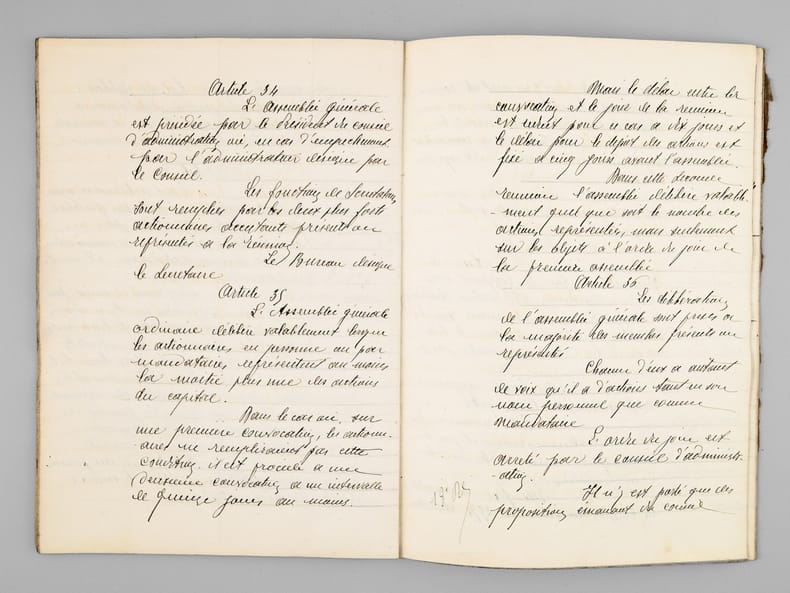 Article 34
L'Assemblée générale
est présidée par le Président du conseil
d'administration ou, en cas d'empêchement
par l'administrateur désigné par
le Conseil.
Les fonctions de Scrutateurs
sont remplies par les deux plus forts
actionnaires acceptants présents ou
représentés à la réunion.
Le Bureau désigne
le Secrétaire
Article 35
L'Assemblée générale
ordinaire délibère valablement lorsque
les actionnaires en personne ou par
mandataires, représentent au moins
la moitié plus une des actions
du capital.
Dans le cas où, sur
une première convocation, les action-
naires ne rempliraient pas cette
condition, il est procédé à une
deuxième convocation à un intervalle
de quinze jours au moins.
Mais le délai entre la
convocation et le jour de la réunion
est réduit pour ce cas à dix jours et
le délai pour le dépôt des actions est
fixé à cinq jours avant l'assemblée.
Dans cette seconde
réunion l'assemblée délibère valable-
ment quel que soit le nombre des
actions représentées, mais seulement
sur les objets à l'ordre du jour de
la première assemblée
Article 36
Les délibérations
de l'assemblée générale sont prises à
la majorité des membres présents ou
représentés
Chacun d'eux a autant
de voix qu'il a d'actions tant en son
nom personnel que comme
mandataire
L'ordre du jour est
arrêté par le conseil d'administr-
ation.
Il n'y est porté que des
propositions émanant du conseil